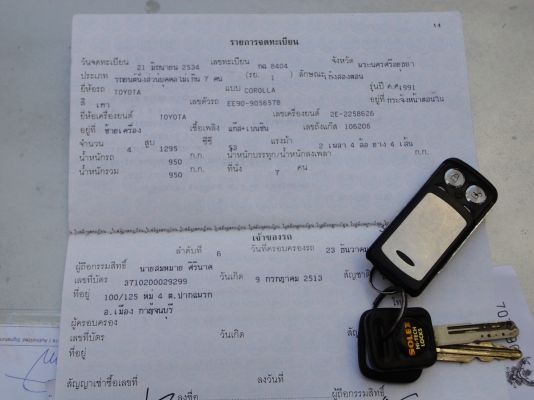 14
รายการจดทะเบียน
วันจดทะเบียน 21 มิถุนายน 2534 เลขทะเบียน กฉ 8404 จังหวัด พระนครศรีอยุธยา
ประเภท รถยนต์นั่งส่วนบุคคลไม่เกิน 7 คน (รย. 1 ) ลักษณะ เก๋งสองตอน
ยี่ห้อรถ TOYOTA แบบ COROLLA รุ่นปี ค.ศ.1991
สี เทา เลขตัวรถ EE90-9056578 อยู่ที่
ยี่ห้อเครื่องยนต์ TOYOTA เลขเครื่องยนต์ 2E-2258626
อยู่ที่ ซ้ายเครื่อง เชื้อเพลิง เลขถังแก๊ส 106206
จำนวน 4 สูบ 1295 ซีซี แรงม้า 2 เพลา 4 ล้อ ยาง 4 เส้น
น้ำหนักรถ 950 ก.ก. น้ำหนักบรรทุก/น้ำหนักลงเพลา ก.ก.
น้ำหนักรวม 950 ก.ก. ที่นั่ง 7 คน
เจ้าของรถ
ลำดับที่ 6 วันที่ครอบครองรถ 23 ธันวาคม
ผู้ถือกรรมสิทธิ์ นายสมหมาย ศิรินาค
เลขที่บัตร 3710200029299 วันเกิด 9 กรกฎาคม 2513 สัญชาติ
ที่อยู่ 100/125 หมู่ 4 ต.ปากแพรก
อ.เมือง กาญจนบุรี
ผู้ครอบครอง
เลขที่บัตร วันเกิด
ที่อยู่
สัญญาเช่าซื้อเลขที่ ลงวันที่ ผู้ถือกรรมสิทธิ์
ลงชื่อ
SOLEX
HI-TECH
LOCKS